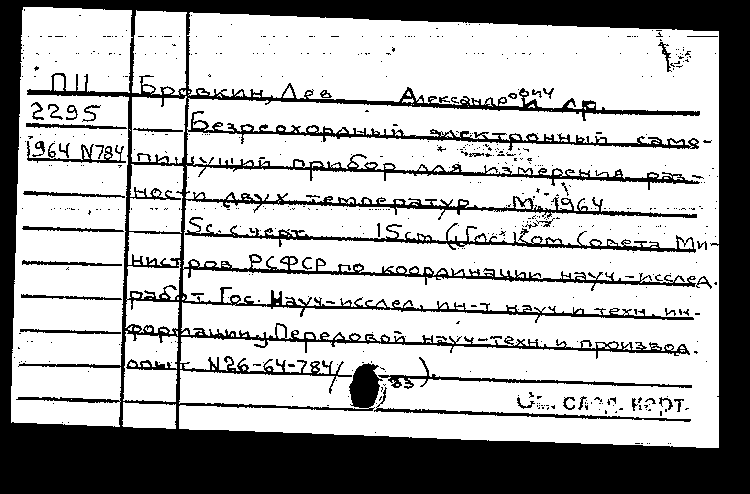 П11 Бровкин, Лев Александрович и др.
2295 Безреохордный электронный само-
1964 N784 пишущий прибор для измерения раз-
ности двух температур. М. 1964
5с. с черт. 15cm (Гос. Ком. Совета Ми-
нистров РСФСР по координации науч.-исслед.
работ. Гос. Науч-исслед. ин-т науч. и техн. ин-
формации. Передовой науч-техн. и производ.
опыт. N26-64-784/ 83).
См. след. карт.